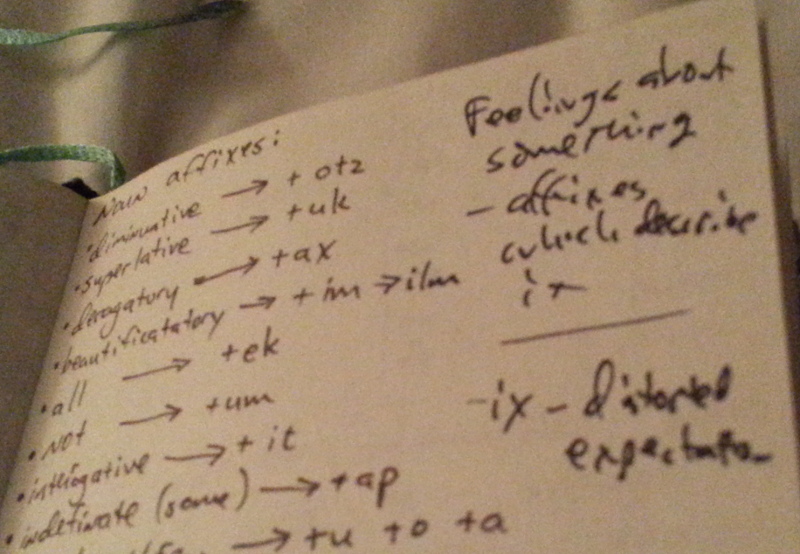 Noun affixes:
• diminuative → + otz
• superlative → + uk
• derogatory → + ax
• beautificatatory → + im → ilm
• all → + ek
• Not → + um
• → + it
• indefinate (some) → + ap
→ + u + o + a
Feelings about
something
- affixes
which describe
it
-ix - distorted